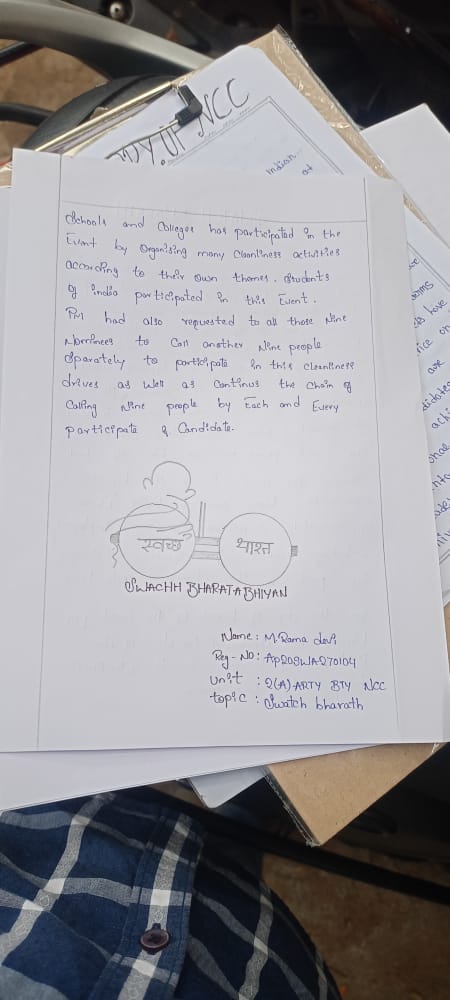 DY.OF NCC
Indian
at
Schools and Colleges has participated in the
Event by Organising many Cleanliness activities
according to their own themes. Students
of india participated in this Event.
PM had also requested to all those Nine
Nominees to Call another Nine people
Sparately to participate in this cleanliness
drives as Well as Continus the Chain of
Calling Nine people by Each and Every
participate & Candidate.
स्वच्छ भारत
SWACHH BHARATABHIYAN
Name : M.Rama devi
Reg-No : AP20SWA270104
Unit : 2(A) ARTY BTY NCC
topic : Swatch bharath
have
are